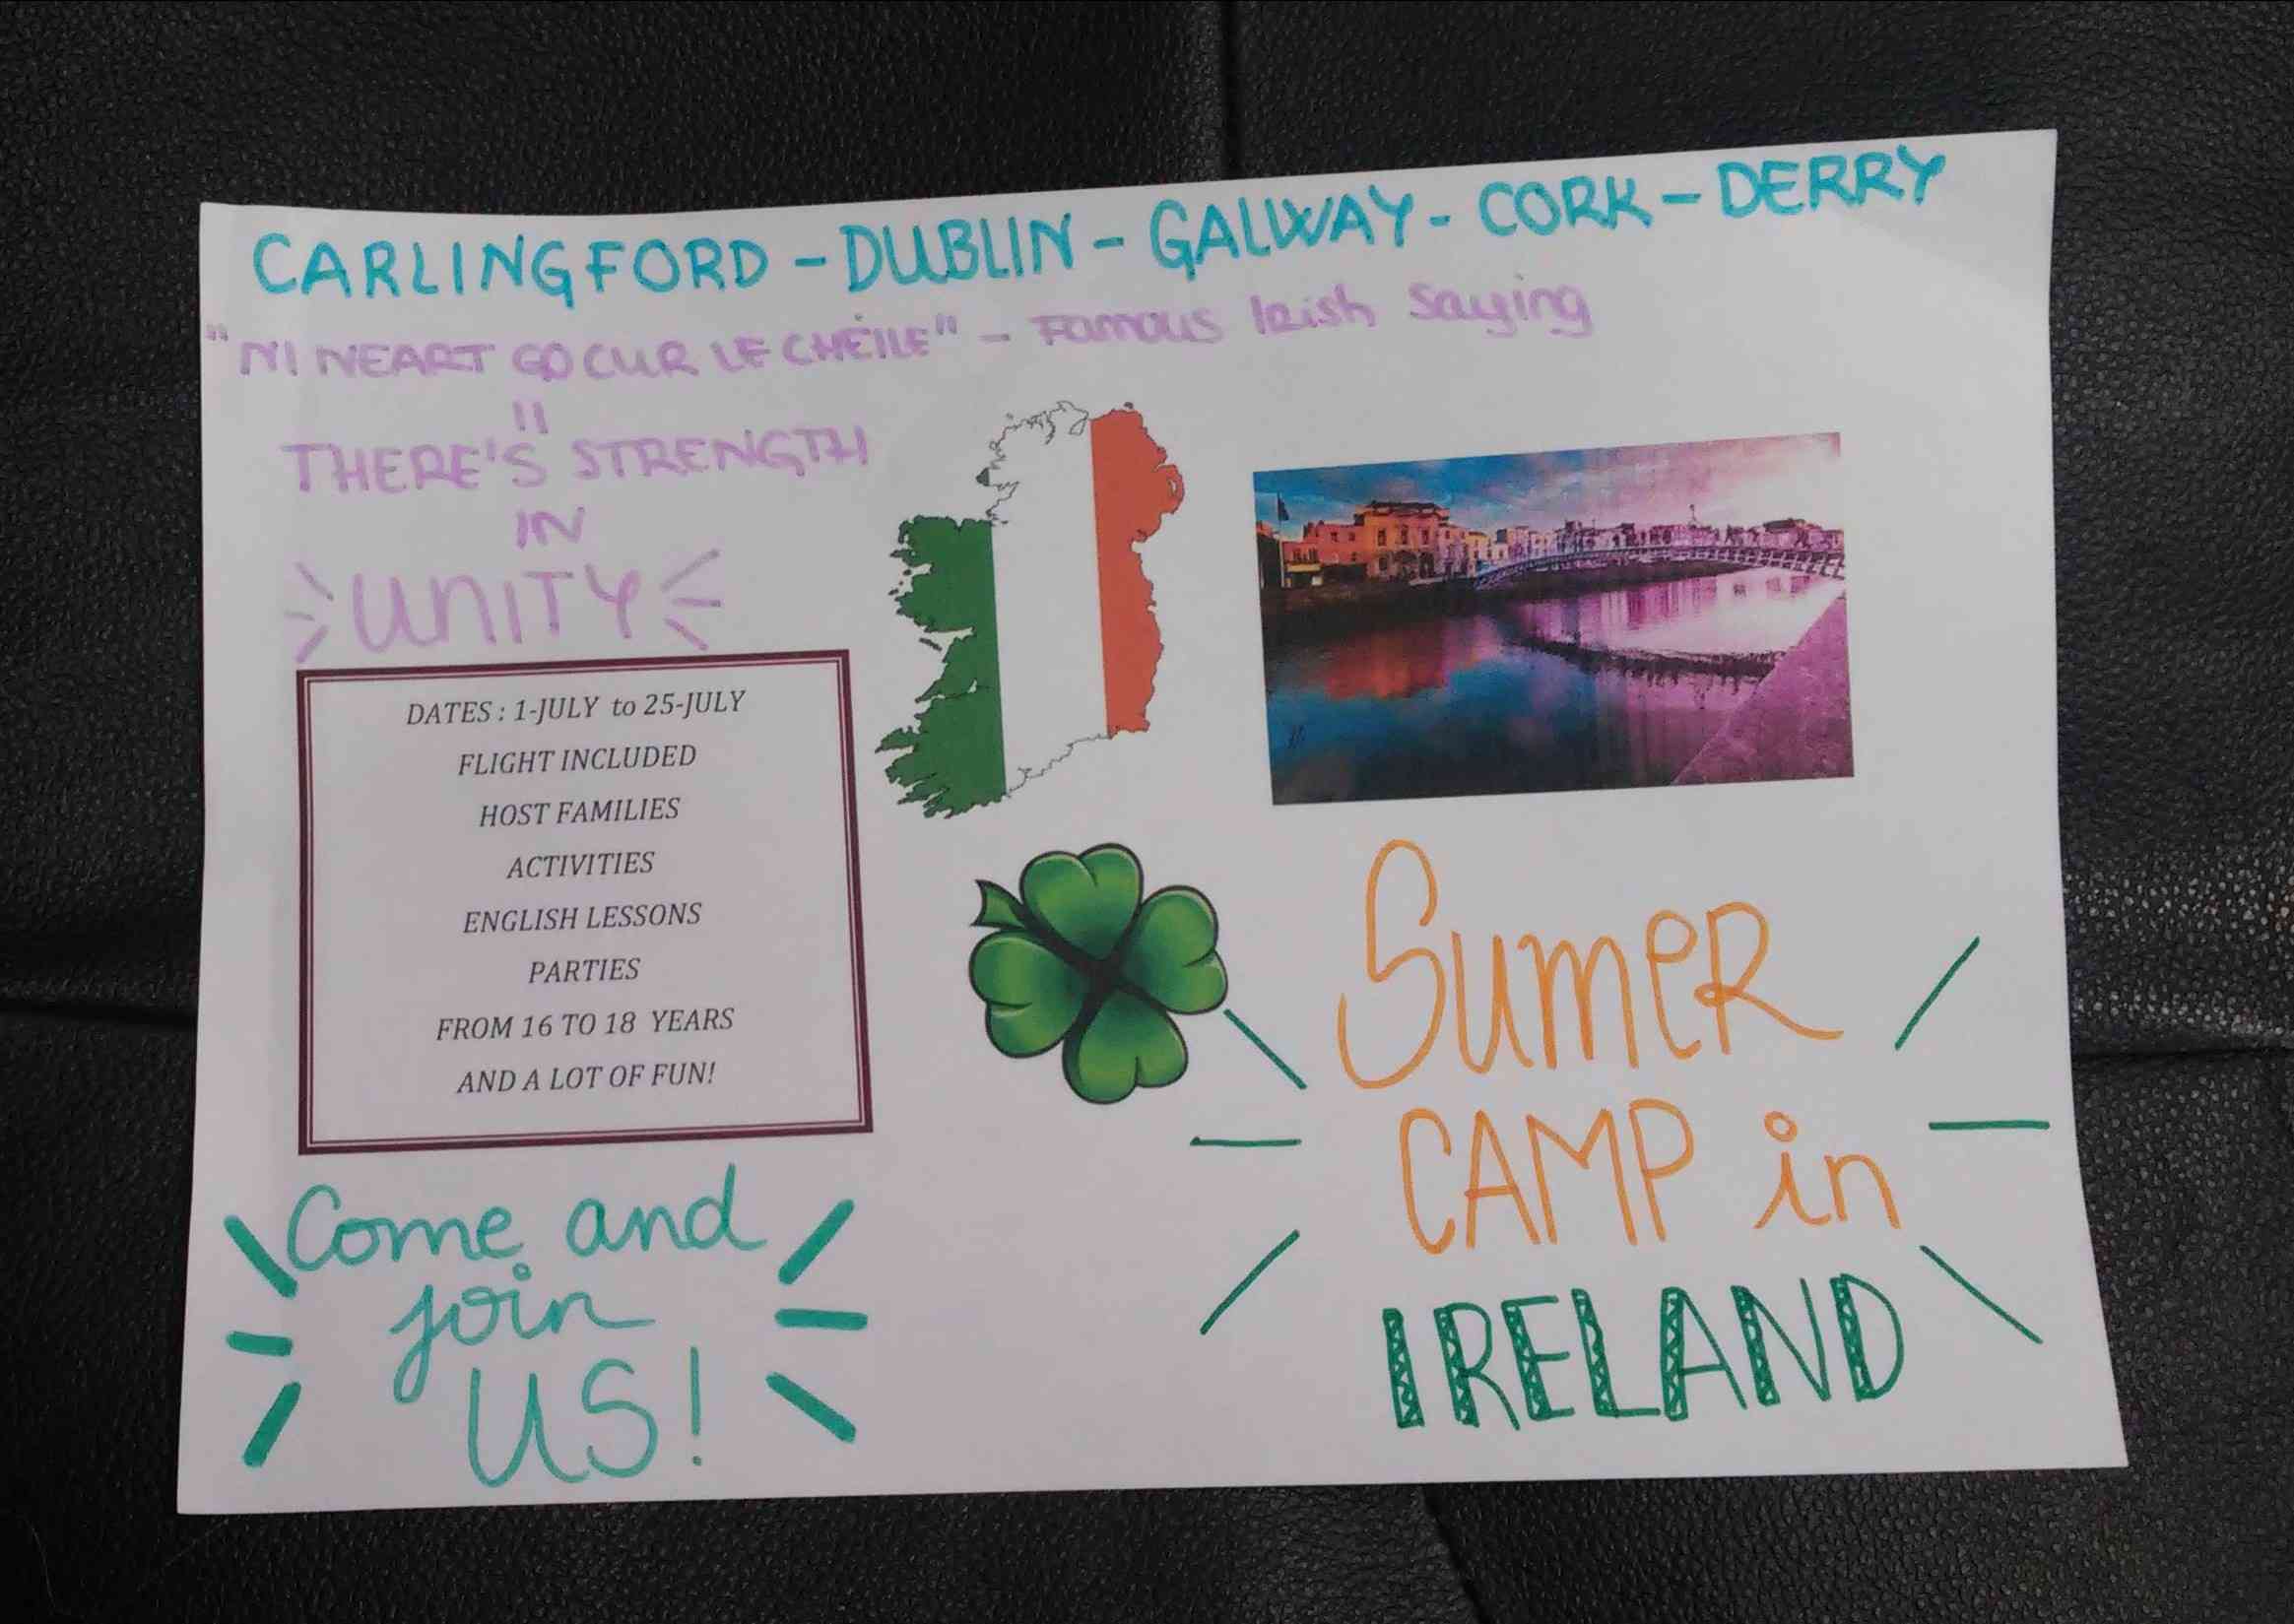 CARLINGFORD - DUBLIN - GALWAY - CORK - DERRY
"NI NEART GO CUR LE CHÉILE" - Famous Irish Saying
"
THERE'S STRENGTH
IN
UNITY
DATES : 1-JULY to 25-JULY
FLIGHT INCLUDED
HOST FAMILIES
ACTIVITIES
ENGLISH LESSONS
PARTIES
FROM 16 TO 18 YEARS
AND A LOT OF FUN!
Come and
join
US!
SumeR
CAMP in
IRELAND